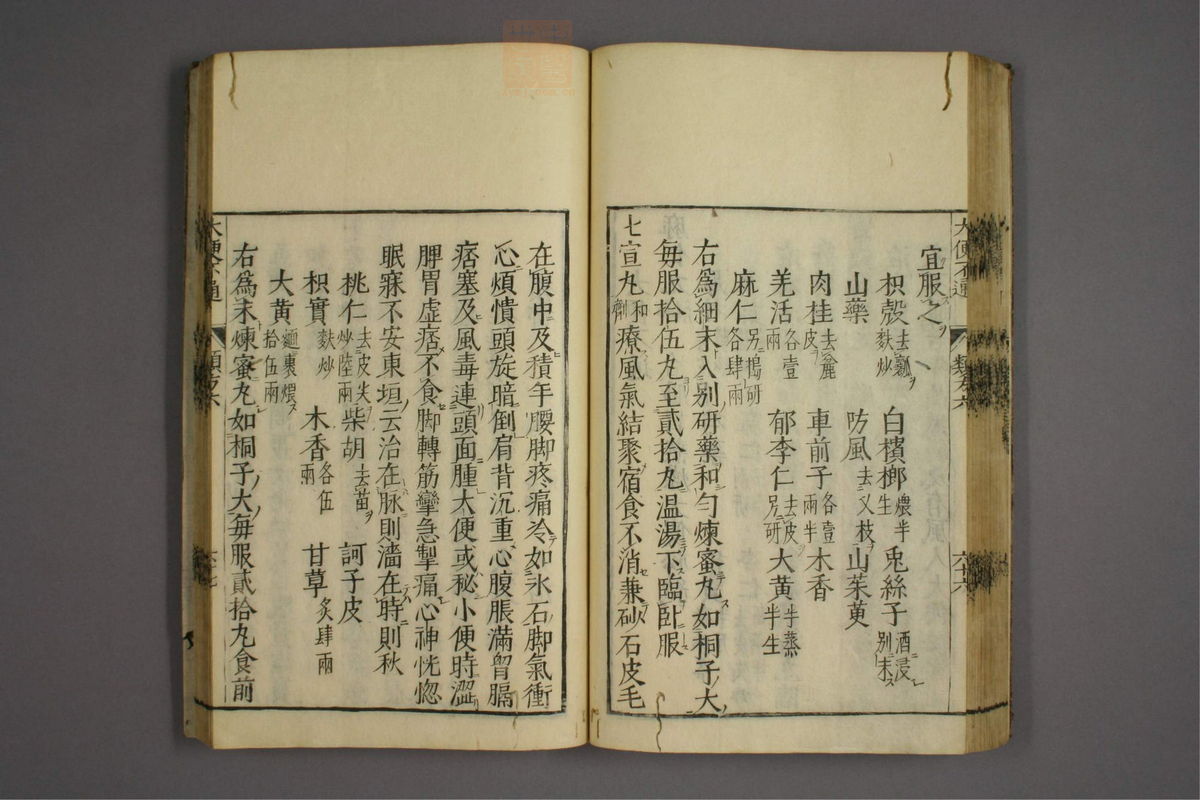 宜服之
枳殼去瓤麩炒 白檳榔煨半生 兎絲子酒浸别末
山藥 防風去叉枝 山茱萸
肉桂去麄皮 車前子各壹兩半 木香
羌活各壹兩 郁李仁去皮另研 大黄半蒸半生
麻仁另搗研各肆兩
右爲細末入别研藥和勻煉蜜丸如桐子大
每服拾伍丸至貳拾丸温湯下臨卧服
七宣丸和劑療風氣結聚宿食不消兼砂石皮毛
在腹中及積年腰脚疼痛冷如氷石脚氣衝
心煩憒頭旋暗倒肩背沉重心腹脹滿胷膈
痞塞及風毒連頭面腫大便或秘小便時澀
脾胃虛痞不食脚轉筋攣急掣痛心神恍惚
眠寐不安東垣云治在脉則濇在時則秋
桃仁去皮尖炒陸兩 柴胡去苗 訶子皮
枳實麩炒 木香各伍兩 甘草炙肆兩
大黄麵裹煨拾伍兩
右爲末煉蜜丸如桐子大每服貳拾丸食前